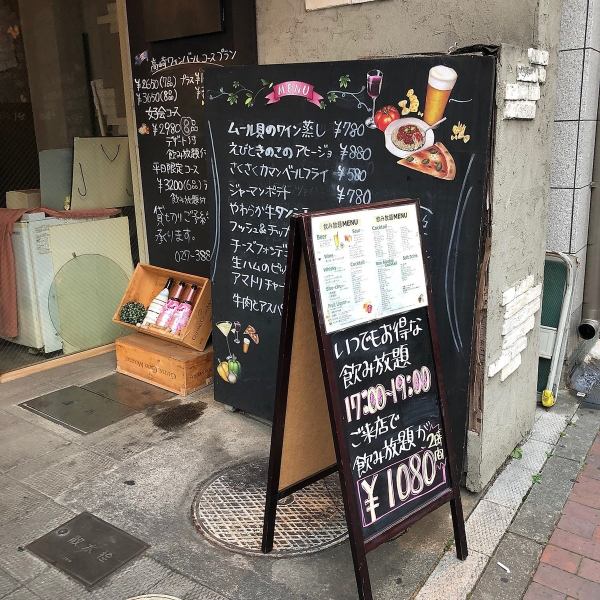 高崎ワインバールコースプラン
¥2650(7品)
¥3050(8品)
女子会コース
¥2980 8品
デザート付
飲み放題付
平日限定コース
¥3200(8品)
飲み放題付
貸し切りご予約
承ります。
MENU
ムール貝のワイン蒸し ¥780
えびときのこのアヒージョ ¥880
さくさくカマンベールフライ ¥580
ジャーマンポテト ¥780
やわらか牛タンシ
フィッシュ&チップ
チーズフォンデ
生ハムのピッ
アマトリチャー
牛肉とアスパ
飲み放題MENU 飲み放題MENU
Beer
Sour
Cocktail
Wine
Whisky
Cocktail
Soft Drink
いつでもお得な
飲み放題
17:00~19:00
ご来店で
飲み放題が2時間
¥1080